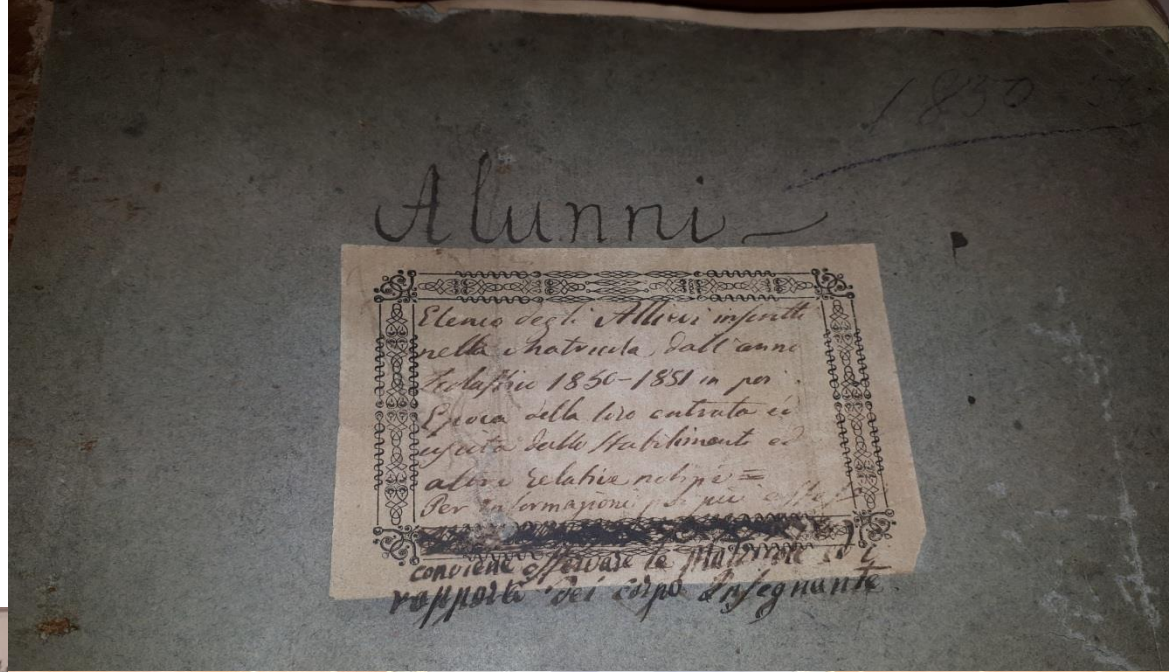 1850
Alunni
Elenco degli Allievi inscritti
nella Matricola dall'anno
Scolastico 1850-1851 in poi
Epoca della loro entrata ed
uscita dallo Stabilimento ed
altre relative notizie =
Per informazioni più
conviene osservare le Matricole
rapporti dei corpo Insegnante